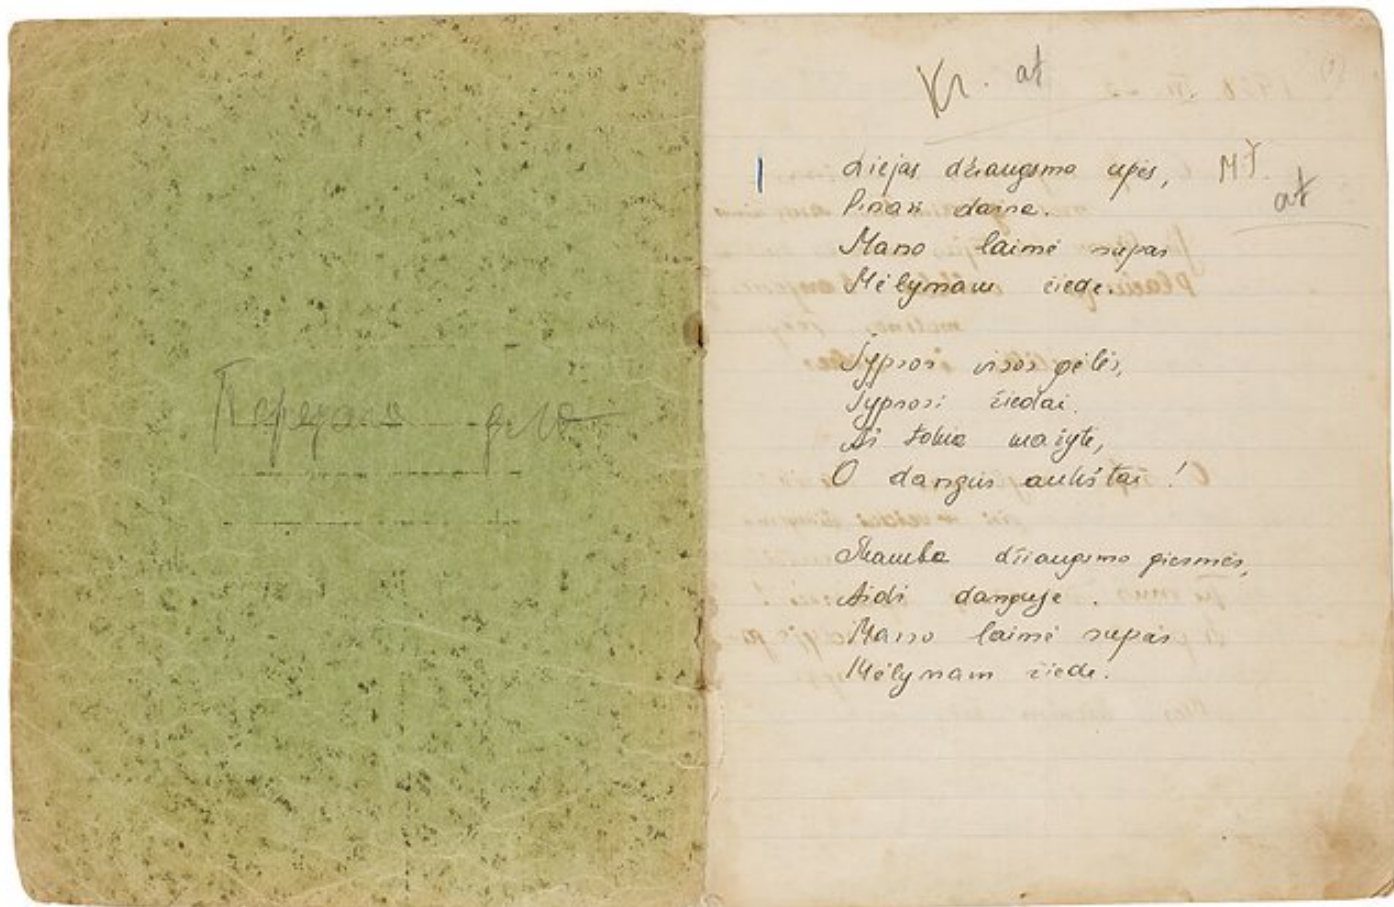 Kr. at
Liejas džiaugsmo upės, MT.
at
Pinasi daina.
Mano laimė supas
Mėlynam žiede.
Šypsos visos gėlės,
Šypsosi žiedai.
Aš tokia mažytė,
O dangus aukštai!
Skamba džiaugsmo giesmės,
Aidi danguje.
Mano laimė supas
Mėlynam žiede.